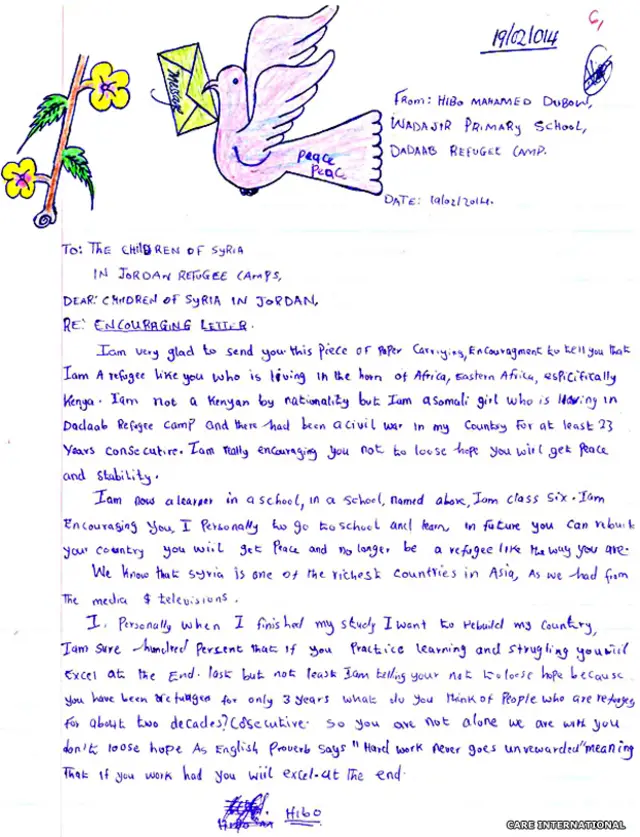 19/02/014
6,
Message
Peace
Peac
From: HIBO MAHAMED DUBOW,
WADAJIR PRIMARY SCHOOL,
DADAAB REFUGEE CAMP.
DATE: 19/02/2014.
To: THE CHILDREN OF SYRIA
IN JORDAN REFUGEE CAMPS,
DEAR: CHILDREN OF SYRIA IN JORDAN,
RE: ENCOURAGING LETTER.
Iam very glad to send you this piece of Paper Carriying, Encouragment to tell you that
Iam A refugee like you who is living in the horn of Africa, Eastern Africa, espicifically
Kenya. Iam not a Kenyan by nationality but Iam a somali girl who is living in
Dadaab Refugee camp and there had been a civil war in my Country for at least 23
Years consecutive. Iam really encouraging you not to loose hope you will get Peace
and stability.
Iam now a learner in a school, in a school, named above, Iam class six. Iam
Encouraging you, I Personally to go to school and learn in future you can rebuilt
your country you wiil get Peace and no longer be a refugee like the way you are.
We Know that syria is one of the richest countries in Asia, As we had from
The media & televisions.
I. Personally when I finished my study I want to rebuild my Country,
Iam sure hundred Percent that if you Practice learning and strugling you wiil
Excel at the End. last but not least Iam telling your not to loose hope because
you have been refugee for only 3 years what do you think of People who are refuges
for about two decades? Cosecutive. so you are not alone we are with you
don't loose hope As English Proverb says "Hard work never goes unrewarded" meaning
That if you work had you wiil excel. at The end.
HIBO
CARE INTERNATIONAL